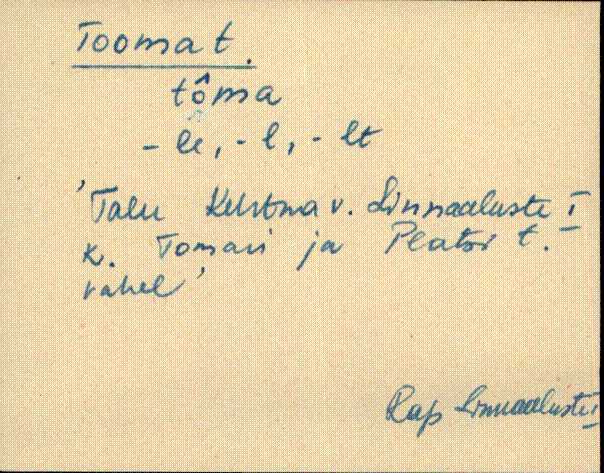 Tooma t.
tôma
- le, - l, - lt
'Talu Kehtna v. Linnaaluste I
k. Tomari ja Peatsi t.
vahel'
Rap Linnaaluste I